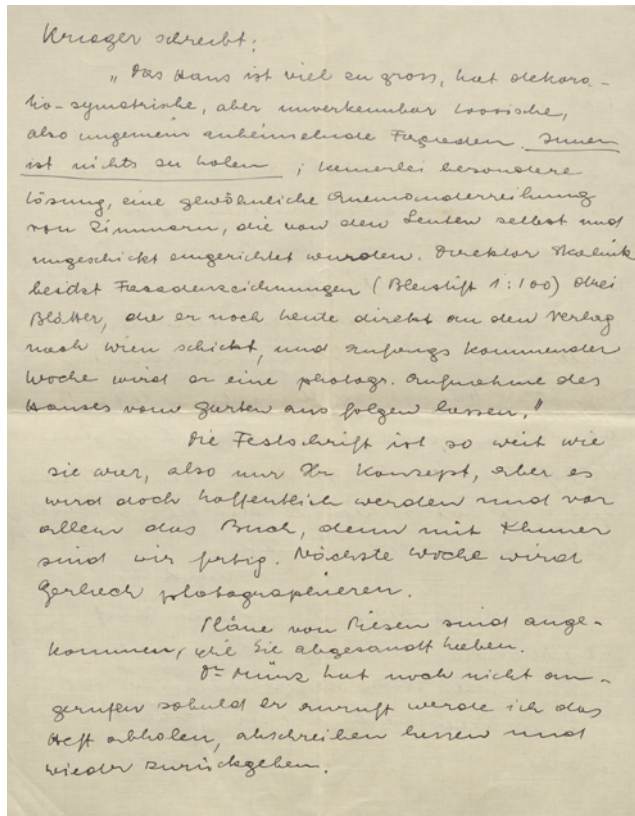 Krieger schreibt:
„Das Haus ist viel zu gross, hat dekora-
tiv-symetrische, aber unverkennbar loosische,
also ungemein anheimelnde Façaden. Innen
ist nichts zu holen; keinerlei besondere
Lösung, eine gewöhnliche Aneinanderreihung
von Zimmern, die von den Leuten selbst und
ungeschickt eingerichtet wurden. Direktor
besitzt Fassadenzeichnungen (Bleistift 1:100) drei
Blätter, die er noch heute direkt an den Verlag
nach Wien schickt, und anfangs kommender
Woche wird er eine photogr. Aufnahme des
Hauses vom Garten aus folgen lassen."
Die Festschrift ist so weit wie
sie war, also nur Ihr Konzept, aber es
wird doch hoffentlich werden und vor
allem das Buch, denn mit Khuner
sind wir fertig. Nächste Woche wird
Gerlach photographieren.
Pläne von Pilsen sind ange-
kommen, die Sie abgesandt haben.
Dr Münz hat noch nicht an-
gerufen sobald er anruft werde ich das
Heft abholen, abschreiben lassen und
wieder zurückgeben.